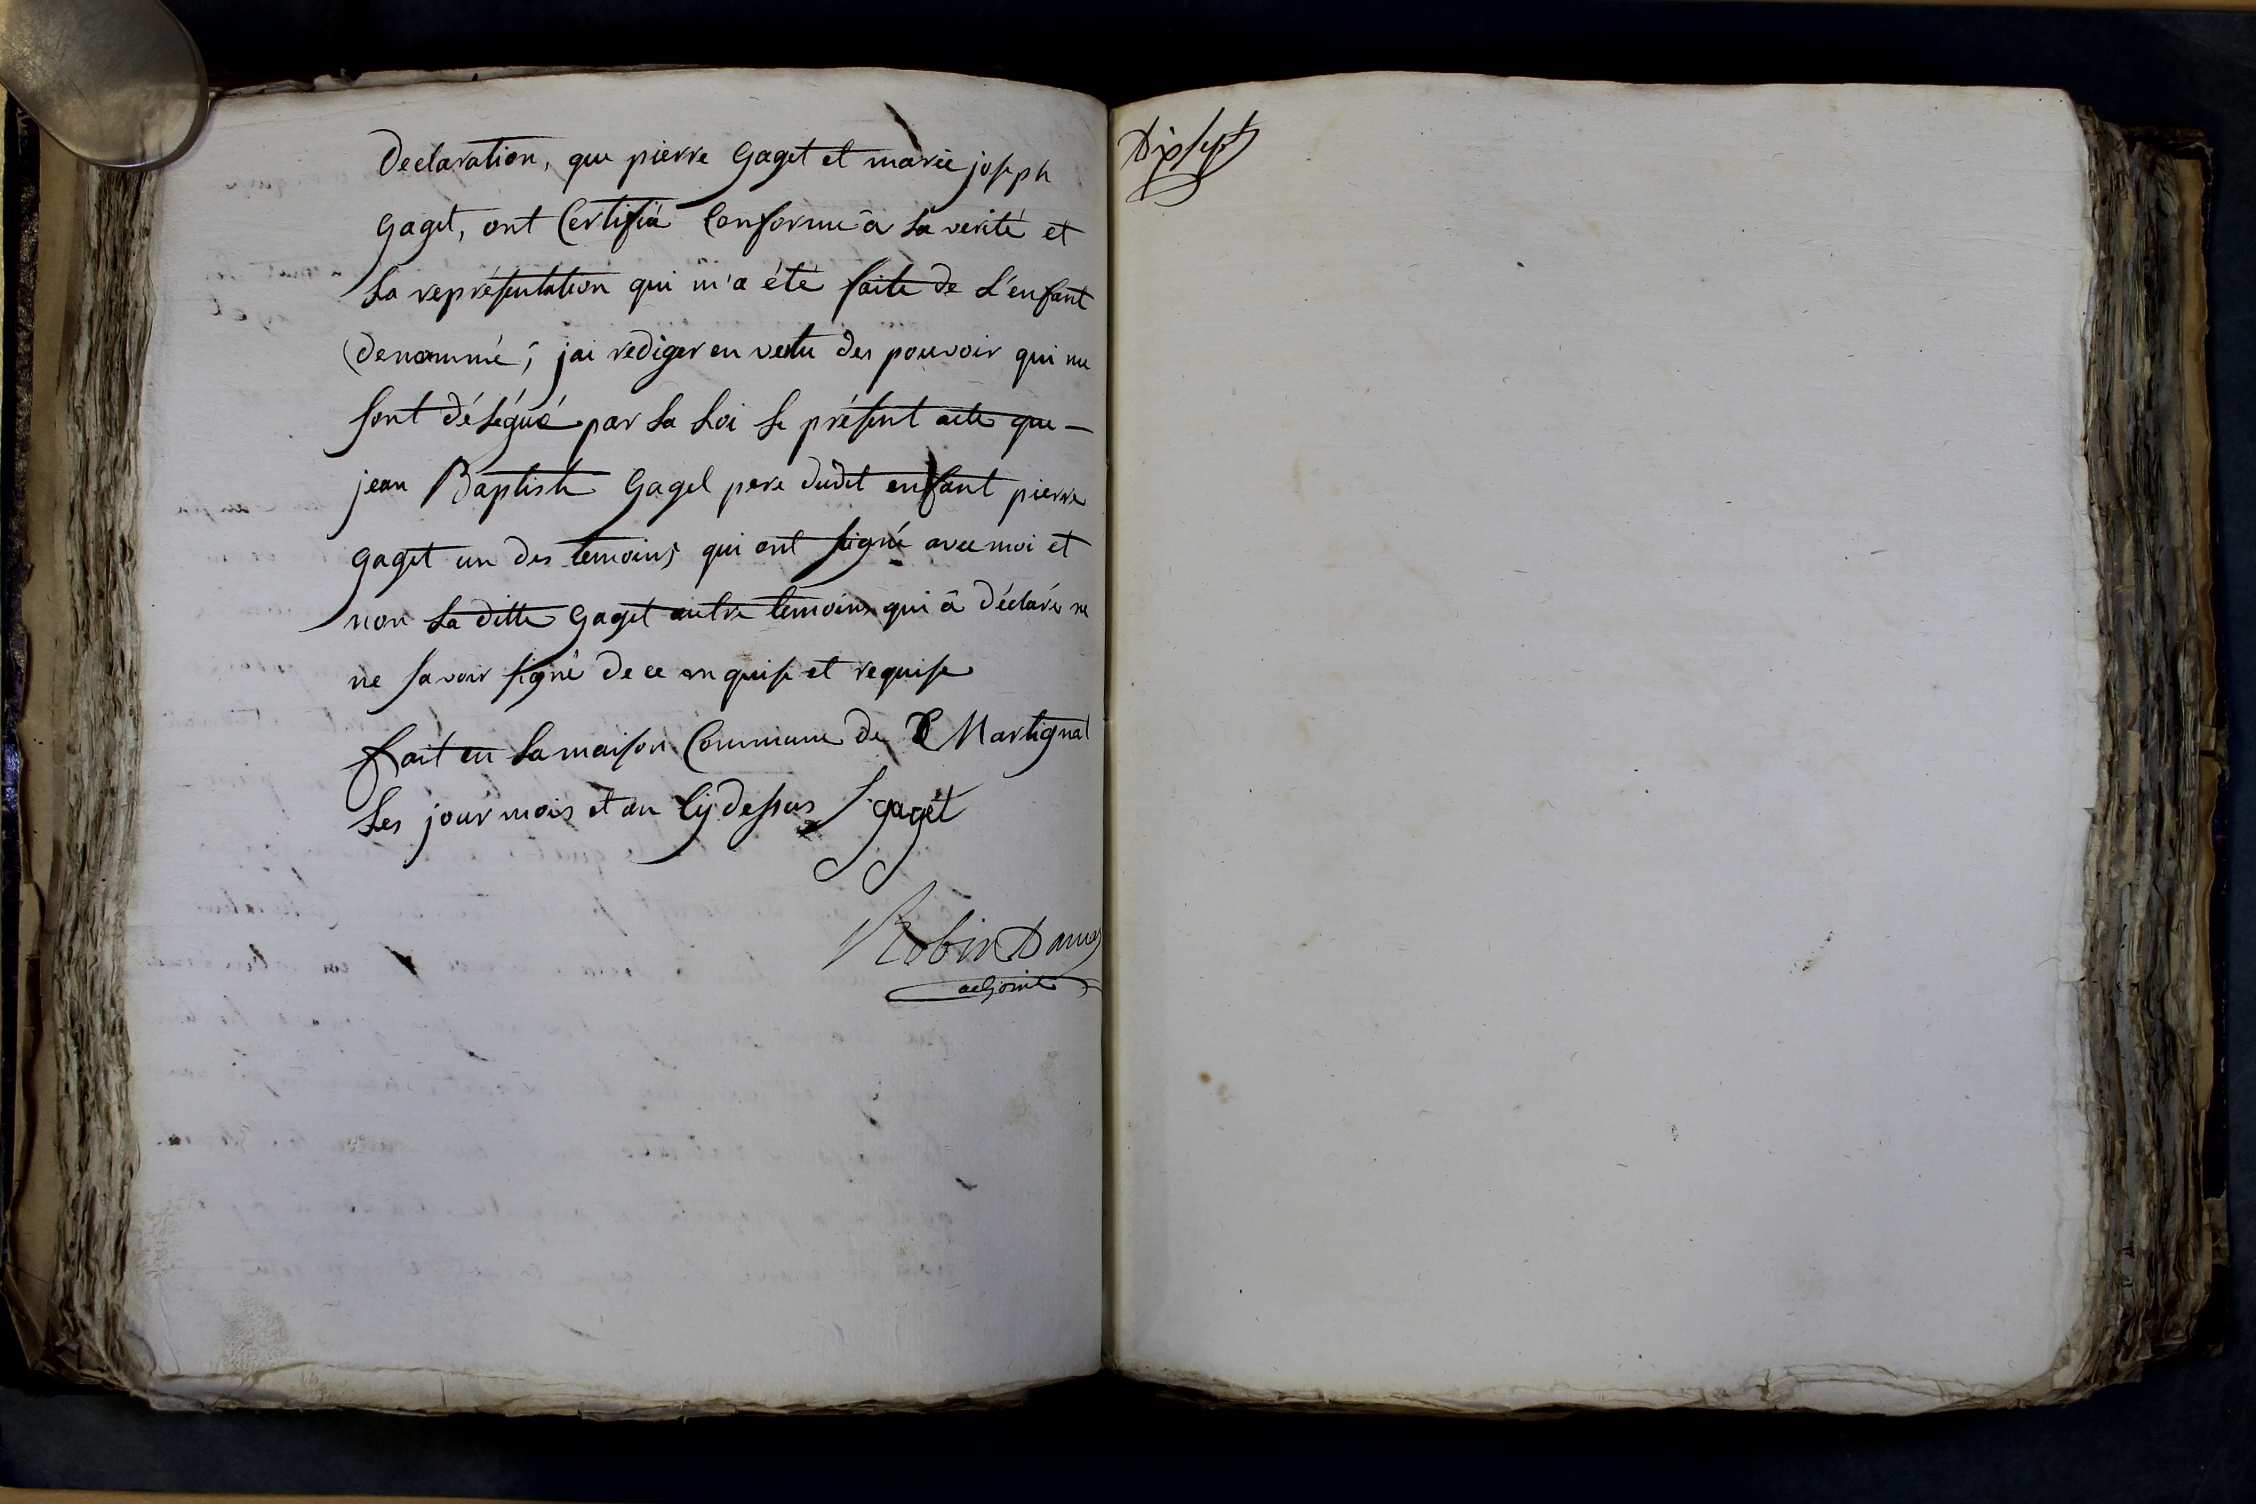 Declaration, que pierre Gaget et marie joseph
Gaget, ont Certifié Conforme â la verité et
la représentation qui m'a été faite de L'enfant
denommé; jai rediger en vertu des pouvoir qui me
sont délégué par la Loi le présent acte que —
jean Baptiste Gaget pere dudit enfant pierre
gaget un des temoins qui ont signé avec moi et
non la ditte Gaget autre temoins qui â déclaré ne
ne savoir signé de ce enquise et requise
fait en la maison Commune de Martignat
Les jour mois et an Cy dessus gaget
Robin
adjoint
Dix sept